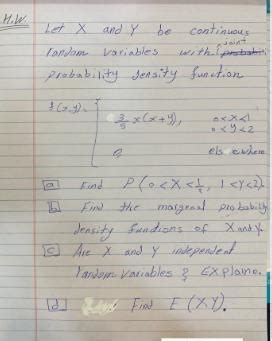 H.W.
Let X and Y be continuous
random variables with joint
probability density function
f(x,y) = { 3/5 x(x+y), 0<x<1
0<y<2
0 elsewhere
[a] Find P(0<X<1/2, 1<Y<2).
[b] Find the margenal probability
density functions of X and Y.
[c] Are X and Y independent
random variables & Explaine.
[d] Find E(XY).